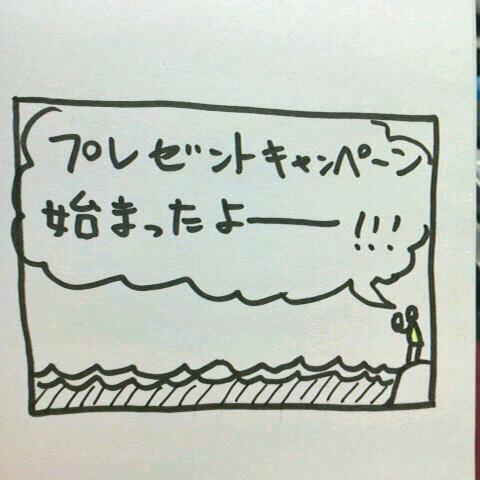 プレゼントキャンペーン
始まったよー!!!